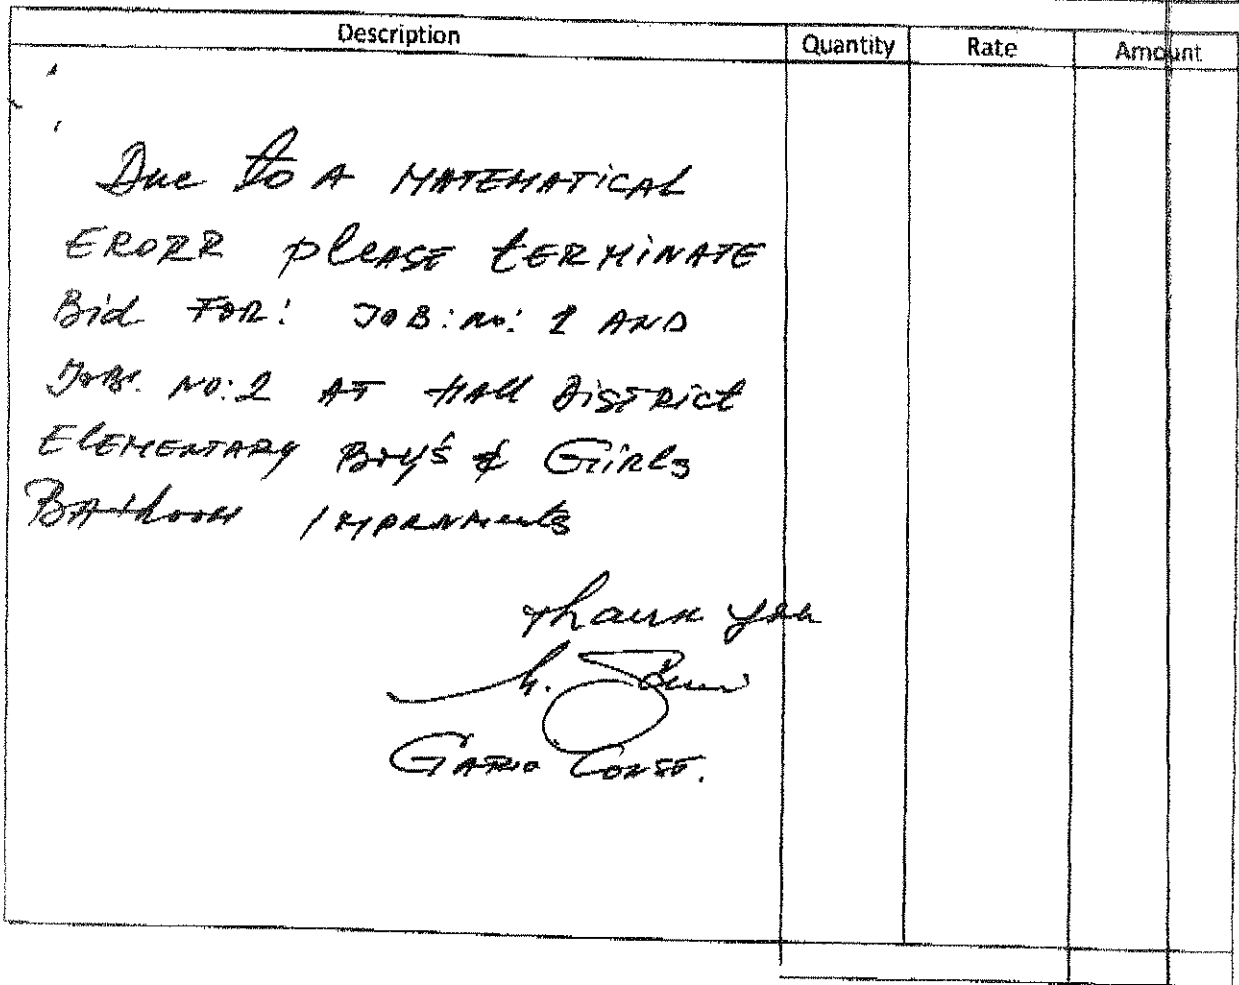 Description Quantity Rate Amount
Due to A MATEMATICAL
ERORR please TERMINATE
Bid FOR: JOB: No: 1 AND
JOB: NO: 2 AT Hall District
ELEMENTARY Boy's & Girls
BAthroom
Thank you
Const.